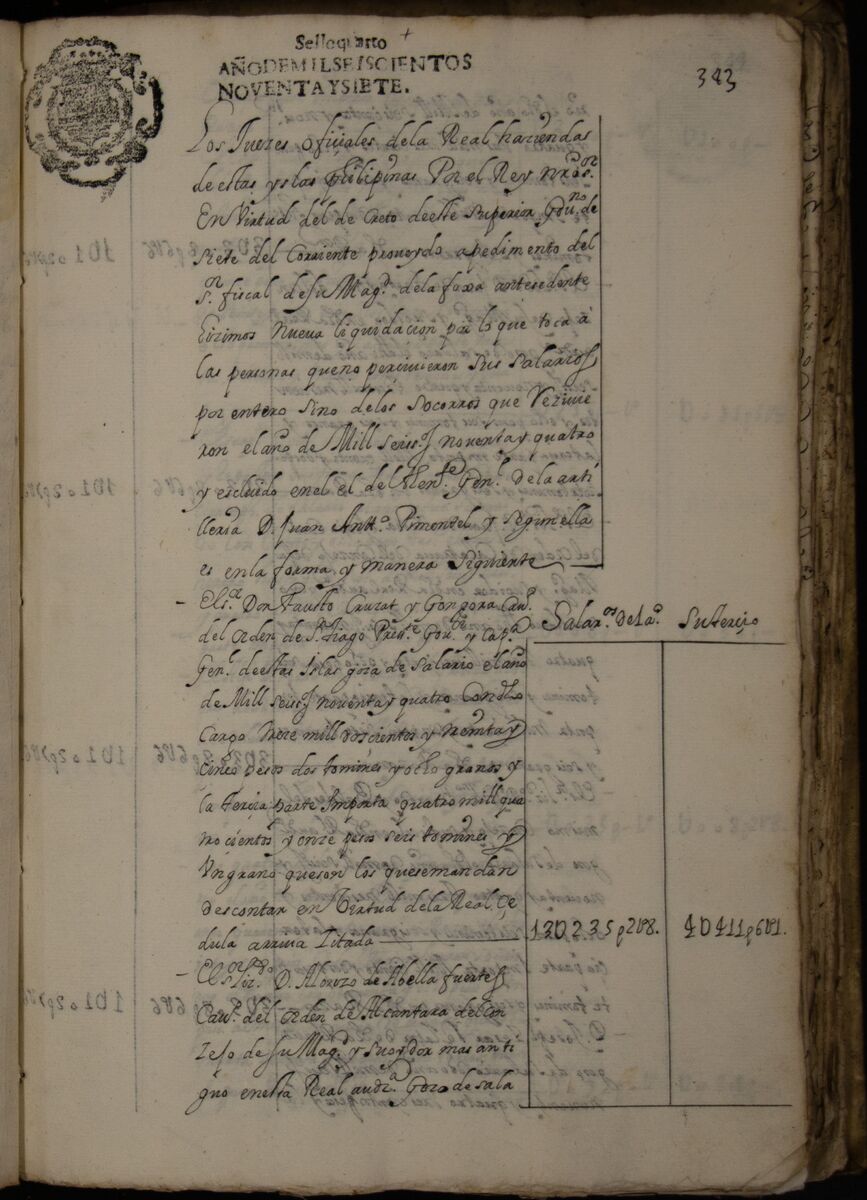 Selloquarto
AÑODEMILSEISCIENTOS
NOVENTAYSIETE.
343
Los Juezes ofiçiales dela Real haziendas
de estas yslas philipinas Por el Rey nro sor.
En Virtud del de Creto deeste Superior Gouno. de
siete del Corriente proueydo apedimento del
Sor. fiscal desu Magd. dela foxa antesedente
Hizimos Nueva liquidacion por lo que toca â
las personas queno perciuieron sus salarios
por entero sino delos socorros que Reziuie
ron elaño de Mill seiss. noventa y quatro
y escluido enel el del Thente. Genl. dela arti
lleria D. Juan Antto. Pimentel y segunella
es enla forma y manera siguiente
- Elsor. Don fausto Cruzat y Gongora Cauo.
del orden de S.tiago Preste. Gouor. y Capn.
Genl. deestas Islas goza de salario elaño
de Mill seiss. noventa y quatro Condho
Cargo treze mill doscientos y treinta y
cinco pesos dos tomines y ocho granos y
la terçia parte Importa quatro mill qua
trocientos y onze pesos seis tomines y
Vngrano queson los quesemandan
descontar en Virtud dela Real Çe
dula arriua citada
Salaros. Dela o. Suterçio
13U235p2U8. 4U411p6U1.
- Elsor. Lizdo. D. Alonzo de Abella fuertes
Cauo. del orden de Alcantara del Con
zejo de su Magd. y su oydor mas anti
guo enesta Real auda. Goza de sala